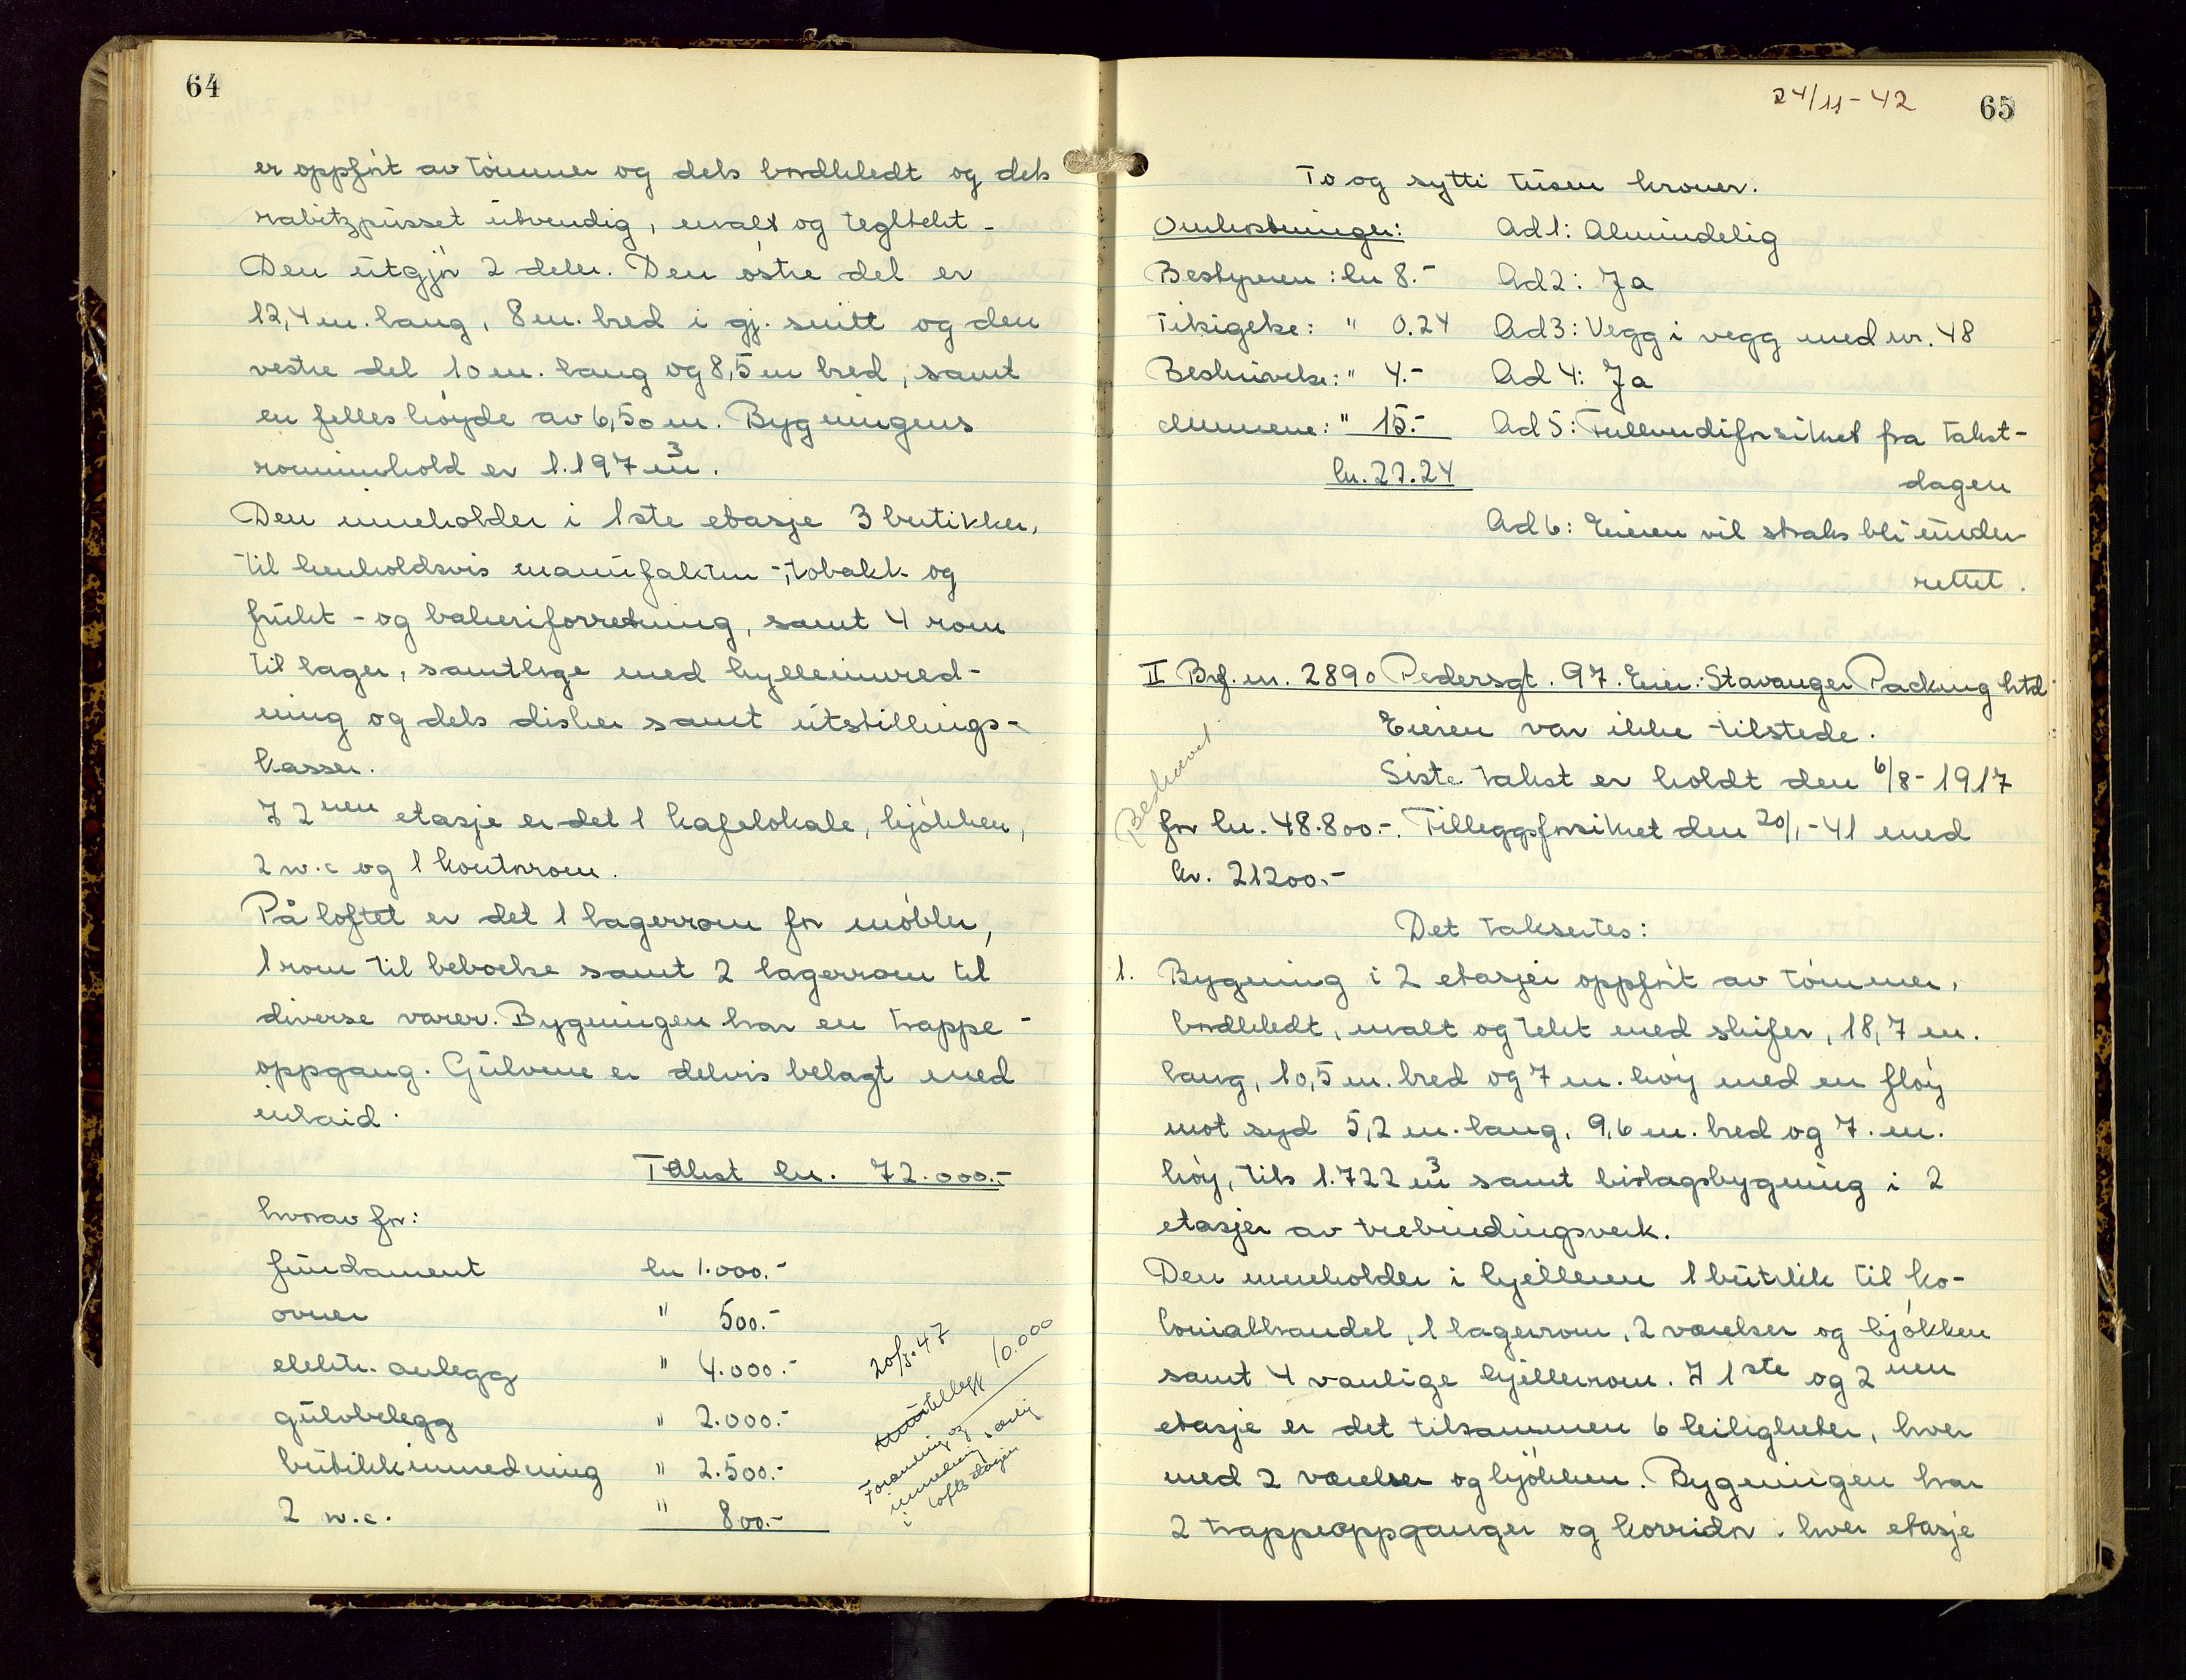 64
er oppført av tømmer og dels bordkledt og dels
rabitzpusset utvendig, malt og tegltekt.
Den utgjør 2 deler. Den østre del er
12,4 m. lang, 8 m. bred i gj. snitt og den
vestre del 10 m. lang og 8,5 m bred, samt
en felles høyde av 6,50 m. Bygningens
rominnhold er 1.197 m³.
Den inneholder i 1ste etasje 3 butikker,
til henholdsvis manufaktur-, tobakk- og
frukt- og bakeriforretning, samt 4 rom
til lager, samtlige med hylleinnred-
ning og dels disker samt utstillings-
kasser.
I 2nen etasje er det 1 kafelokale, kjøkken,
2 w.c og 1 kontorrom.
På loftet er det 1 lagerrom for møbler,
1 rom til beboelse samt 2 lagerrom til
diverse varer. Bygningen har en trappe-
oppgang. Gulvene er delvis belagt med
inlaid.
Takst kr. 72.000.-
hvorav for:
fundament kr 1.000.-
ovner " 500.-
elektr. anlegg " 4.000.-
gulvbelegg " 2.000.-
butikkinnredning " 2.500.-
2 w.c. " 800.-
20/3-47
10.000
Forandring og
innredning særlig
i loftsetasjen
24/11-42 65
To og sytti tusen kroner.
Omkostninger: Ad 1: Almindelig
Bestyreren: kr 8.- Ad 2: Ja
Tilsigelse: " 0.24 Ad 3: Vegg i vegg med nr. 48
Beskrivelse: " 4.- Ad 4: Ja
Mennene: " 15.- Ad 5: Fullverdiforsikret fra takst-
kr. 27.24 dagen
Ad 6: Eieren vil straks bli under-
rettet.
II Brf. nr. 2890 Pedersgt. 97. Eier: Stavanger Packing Ltd
Eieren var ikke tilstede.
Siste takst er holdt den 6/8-1917
for kr. 48.800.-. Tilleggsforsikret den 20/1-41 med
kr. 21200.-
Det takseres:
1. Bygning i 2 etasjer oppført av tømmer,
bordkledt, malt og tekt med skifer, 18,7 m.
lang, 10,5 m. bred og 7 m. høy med en fløy
mot syd 5,2 m. lang, 9,6 m. bred og 7. m.
høy, tils 1.722 m³ samt bislagsbygning i 2
etasjer av trebindingsverk.
Den inneholder i kjelleren 1 butikk til ko-
lonialhandel, 1 lagerrom, 2 værelser og kjøkken
samt 4 vanlige kjellerrom. I 1ste og 2nen
etasje er det tilsammen 6 leiligheter, hver
med 2 værelser og kjøkken. Bygningen har
2 trappeoppganger og korridor i hver etasje